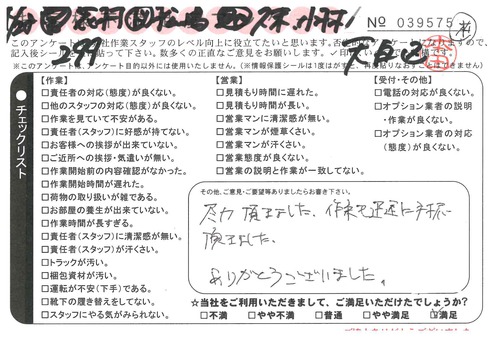 No 039575
このアンケートは
社作業スタッフのレベル向上に役立てたいと思います。
数多くの正直なご意見をお願いします。
※このアンケートは、アンケート目的以外には使用いたしません。(※情報保護シールは1度はがすと、再度貼りなおすことはできません)
299
チェックリスト
【作業】
□責任者の対応(態度)が良くない。
□他のスタッフの対応(態度)が良くない。
□作業を見ていて不安がある。
□責任者(スタッフ)に好感が持てない。
□お客様への挨拶が出来ていない。
□ご近所への挨拶・気遣いが無い。
□作業開始前の内容確認がなかった。
□作業開始時間が遅れた。
□荷物の取り扱いが雑である。
□お部屋の養生が出来ていない。
□作業時間が長すぎる。
□責任者(スタッフ)に清潔感が無い。
□責任者(スタッフ)が汗くさい。
□トラックが汚い。
□梱包資材が汚い。
□運転が不安(下手)である。
□靴下の履き替えをしてない。
□スタッフにやる気がみられない。
【営業】
□見積もり時間に遅れた。
□見積もり時間が長い。
□営業マンに清潔感が無い。
□営業マンが煙草くさい。
□営業マンが汗くさい。
□営業態度が良くない。
□営業の説明と作業が一致してない。
【受付・その他】
□電話の対応が良くない。
□オプション業者の説明・作業が良くない。
□オプション業者の対応(態度)が良くない。
その他、ご意見・ご要望等ありましたらお書き下さい。
尽力頂きました、作業も迅速に
頂きました。
ありがとうございました。
☆当社をご利用いただきまして、ご満足いただけたでしょうか?
□不満 □やや不満 □普通 □やや満足 ☑満足